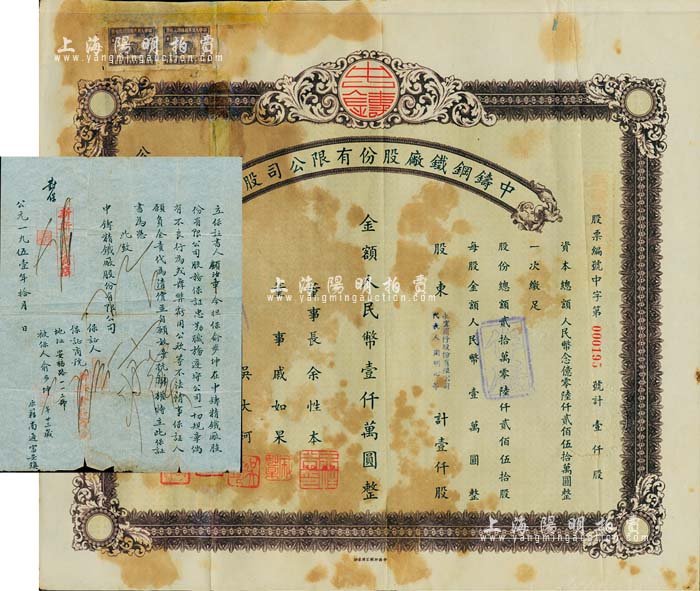 上海陽明拍賣
www.yangmingauction.com
中鑄鋼鐵廠股份有限公司股
股票編號中字第 000195 號計壹仟股
資本總額人民幣念億零陸仟貳佰伍拾萬圓整
一次繳足
股份總額貳拾萬零陸仟貳佰伍拾股
每股金額人民幣壹萬圓整
股東
計壹仟股
金額人民幣壹仟萬圓整
董事長余性本
董事戚如杲
吳大柯
立保証書人顧
今担保俞步坤在中鑄精鐵廠股
份有限公司服務保証忠於職務遵守公司一切規章倘
有不良行為或舞弊
公款等不法情事保証人
願負全責代為
此致
中鑄精鐵廠股份有限公司
保証人
保証商號
地址
被保人俞步坤
年廿三歲
公元一九五壹年拾月 日
上海陽明拍賣
www.yangmingauction.com
上海陽明拍賣
www.yangmingauction.com
上海陽明拍賣
www.yangmingauction.com